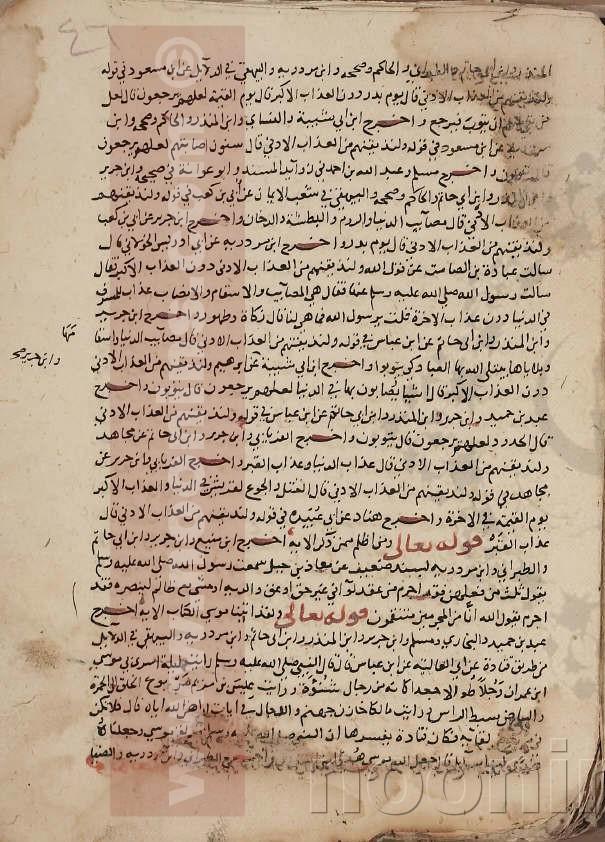 ٤٦
المنذر وابن ابي حاتم والطبراني والحاكم وصححه وابن مردويه والبيهقي في الدلايل عن ابن مسعود في قوله
ولنذيقنهم من العذاب الادنى قال يوم بدر دون العذاب الاكبر قال يوم القيمة لعلهم يرجعون قال لعل
من بقي منهم ان يتوب فيرجع واخرج ابن ابي شيبة والنساي وابن المنذر والحاكم وصححه وابن
مردويه عن ابن مسعود في قوله ولنذيقنهم من العذاب الادنى قال سنون اصابتهم لعلهم يرجعون
قال يتوبون واخرج مسلم وعبد الله بن احمد في زوايد المسند وابو عوانة في صحيحه وابن جرير
وابن المنذر وابن ابي حاتم والحاكم وصححه والبيهقي في شعب الايمان عن ابي بن كعب في قوله ولنذيقنهم
من العذاب الادنى قال مصايب الدنيا والروم والبطشة والدخان واخرج ابن جرير عن ابي بن كعب
ولنذيقنهم من العذاب الادنى قال يوم بدر واخرج ابن مردويه عن ابي ادريس الخولاني قال
سالت عبادة بن الصامت عن قول الله ولنذيقنهم من العذاب الادنى دون العذاب الاكبر فقال
سالت رسول الله صلى الله عليه وسلم عنها فقال هي المصايب والاسقام والانصاب عذاب للمسرف
في الدنيا دون عذاب الاخرة قلت يرسول الله فما هي لنا قال زكاة وطهور واخرج ابن جرير
وابن المنذر وابن ابي حاتم عن ابن عباس في قوله ولنذيقنهم من العذاب الادنى قال مصايب الدنيا واسقا
مها
وبلاياها يبتلي الله بها العباد كي يتوبوا واخرج ابن ابي شيبة عن ابرهيم ولنذيقنهم من العذاب الادنى
وابن جرير صح
دون العذاب الاكبر قال اشيا يصابون بها في الدنيا لعلهم يرجعون قال يتوبون واخرج
عبد بن حميد وابن جرير وابن المنذر وابن ابي حاتم عن ابن عباس في قوله ولنذيقنهم من العذاب الادنى
قال الحدود لعلهم يرجعون قال يتوبون واخرج الفريابي وابن جرير وابن ابي حاتم عن مجاهد
ولنذيقنهم من العذاب الادنى قال عذاب الدنيا وعذاب القبر واخرج الفريابي وابن جرير عن
مجاهد في قوله ولنذيقنهم من العذاب الادنى قال القتل والجوع لقريش في الدنيا والعذاب الاكبر
يوم القيمة في الاخرة واخرج هناد عن ابي عبيدة في قوله ولنذيقنهم من العذاب الادنى قال
عذاب القبر قوله تعالى ومن اظلم ممن ذكر الاية اخرج ابن منيع وابن جرير وابن ابي حاتم
والطبراني وابن مردويه بسند ضعيف عن معاذ بن جبل سمعت رسول الله صلى الله عليه وسلم
يقول ثلث من فعلهن فقد اجرم من عقد لوا في غير حق او عق والديه او مشى مع ظالم لينصره فقد
اجرم يقول الله انا من المجرمين منتقمون قوله تعالى ولقد اتينا موسى الكتاب الاية اخرج
عبد بن حميد والبخاري ومسلم وابن جرير وابن المنذر وابن ابي حاتم وابن مردويه والبيهقي في الدلايل
من طريق قتادة عن ابي العالية عن ابن عباس قال قال النبي صلى الله عليه وسلم رايت ليلة اسري بي موسى
ابن عمران رجلا طوالا جعدا كانه من رجال شنؤة ورايت عيسى بن مريم مربوع الخلق الى الحمرة
والبياض سبط الراس ورايت مالكا خازن جهنم والدجال في ايات اراهن الله اياه قال فلا تكن
لقايه فكان قتادة يفسرها ان النبي صلى الله عليه وسلم لقي موسى وجعلناه
قال جعل الله موسى هدى الطبراني وابن مردويه والضيا